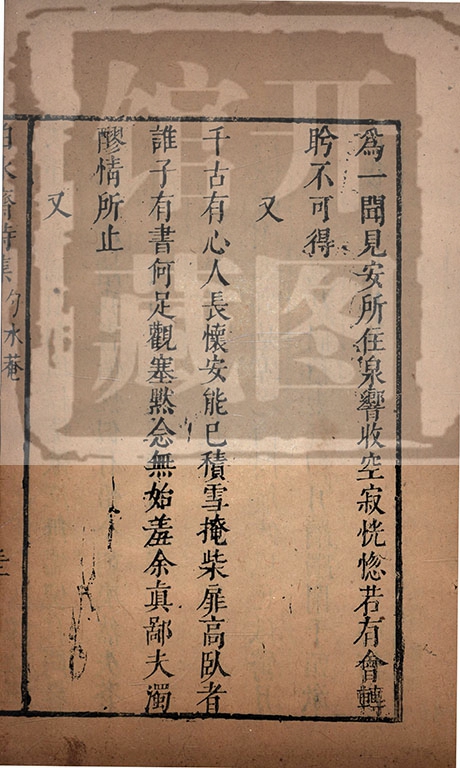 爲一聞見安所住泉響收空寂恍惚若有會轉
盻不可得
又
千古有心人長懷安能已積雪掩柴扉高臥者
誰子有書何足觀塞默念無始羞余眞鄙夫濁
醪情所止
又
白水齋詩集 勺水菴
开图
馆藏